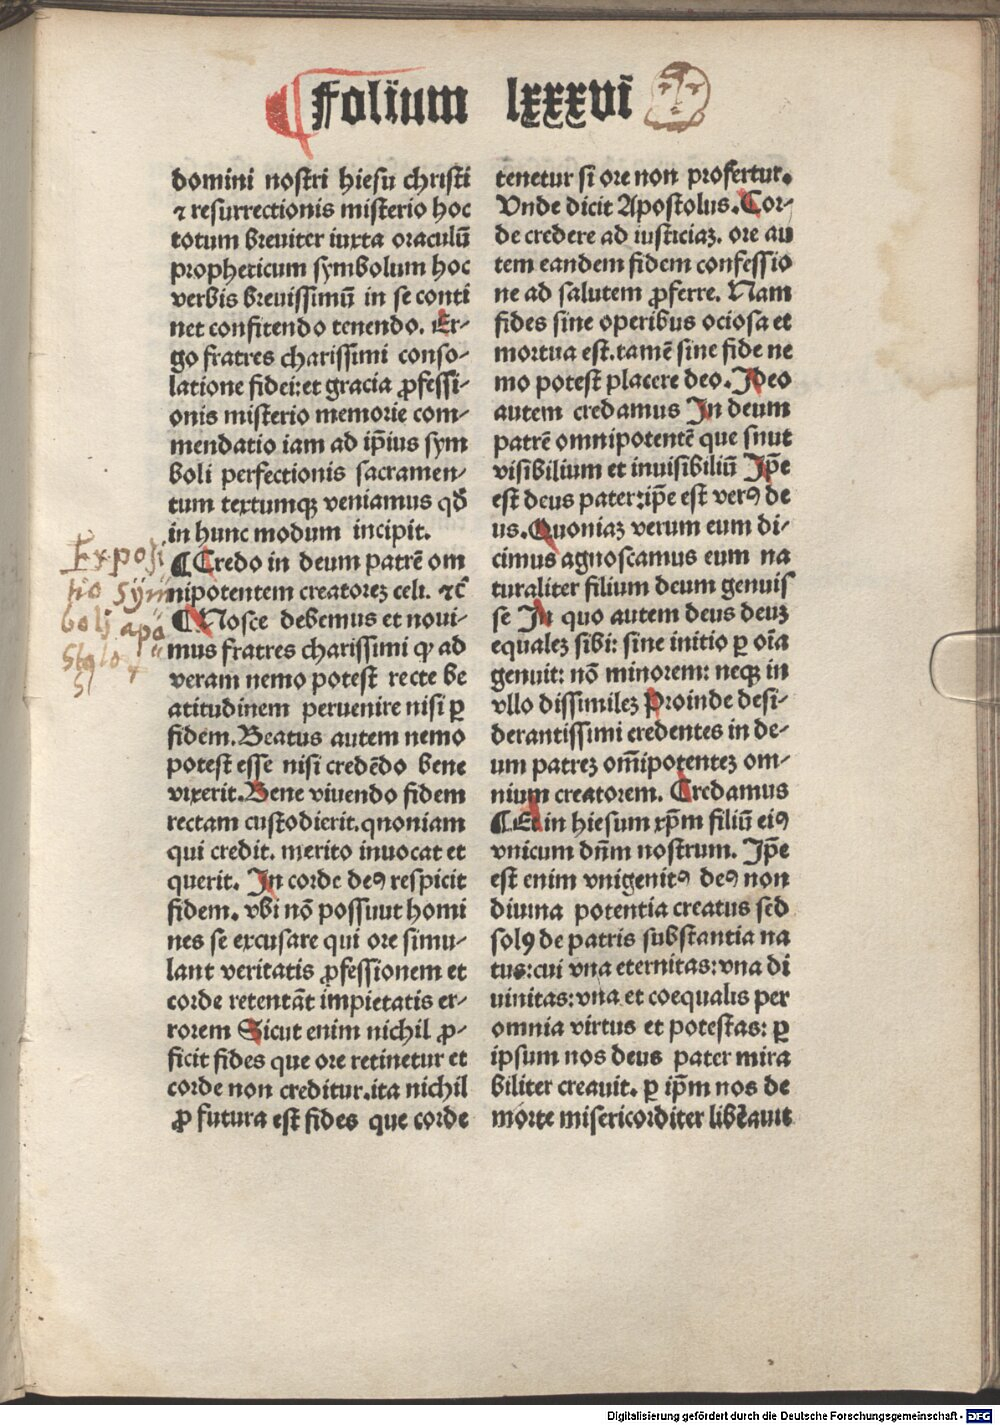 Folium lxxxvi
domini nostri hiesu christi
⁊ resurrectionis misterio hoc
totum breuiter iuxta oraculū
propheticum symbolum hoc
verbis breuissimū in se conti
net confitendo tenendo. Er-
go fratres charissimi conso-
latione fidei: et gracia ꝓfessi-
onis misterio memorie com-
mendatio iam ad ip̄ius sym
boli perfectionis sacramen-
tum textumqꝫ veniamus qd̄
in hunc modum incipit.
¶ Credo in deum patrē om
nipotentem creatorēꝫ celi. ⁊c̄
¶ Nosce debemus et noui-
mus fratres charissimi ꝙ ad
veram nemo potest recte be
atitudinem peruenire nisi ꝑ
fidem. Beatus autem nemo
potest esse nisi credēdo bene
vixerit. Bene viuendo fidem
rectam custodierit. qnoniam
qui credit. merito inuocat et
querit. In corde deꝰ respicit
fidem. vbi nō possuut homi
nes se excusare qui ore simu-
lant veritatis ꝓfessionem et
corde retentāt impietatis er-
rorem Sicut enim nichil ꝓ-
ficit fides que ore retinetur et
corde non creditur. ita nichil
ꝓ futura est fides que corde
Exposi
tio Sym
bolj apo
Stolorum
tenetur si ore non profertur.
Vnde dicit Apostolus. Cor-
de credere ad iusticiaꝫ. ore au
tem eandem fidem confessio
ne ad salutem ꝓferre. Nam
fides sine operibus ociosa et
mortua est. tamē sine fide ne
mo potest placere deo. Ideo
autem credamus In deum
patrē omnipotentē que snut
visibilium et inuisibiliū Ip̄e
est deus pater: ip̄e est verꝰ de
us. Quoniaꝫ verum eum di-
cimus agnoscamus eum na
turaliter filium deum genuis
se In quo autem deus deuꝫ
equaleꝫ sibi: sine initio ꝑ oīa
genuit: nō minorem: neqꝫ in
vllo dissimileꝫ Proinde desi-
derantissimi credentes in de-
um patreꝫ om̄ipotenteꝫ om-
nium creatorem. Credamus
¶ Et in hiesum xp̄m filiū eiꝰ
vnicum dn̄m nostrum. Ip̄e
est enim vnigenitꝰ deꝰ non
diuina potentia creatus sed
solꝰ de patris substantia na
tus: cui vna eternitas: vna di
uinitas: vna et coequalis per
omnia virtus et potestas: ꝑ
ipsum nos deus pater mira
biliter creauit. ꝑ ip̄m nos de
morte misericorditer libēauit
Digitalisierung gefördert durch die Deutsche Forschungsgemeinschaft - DFG